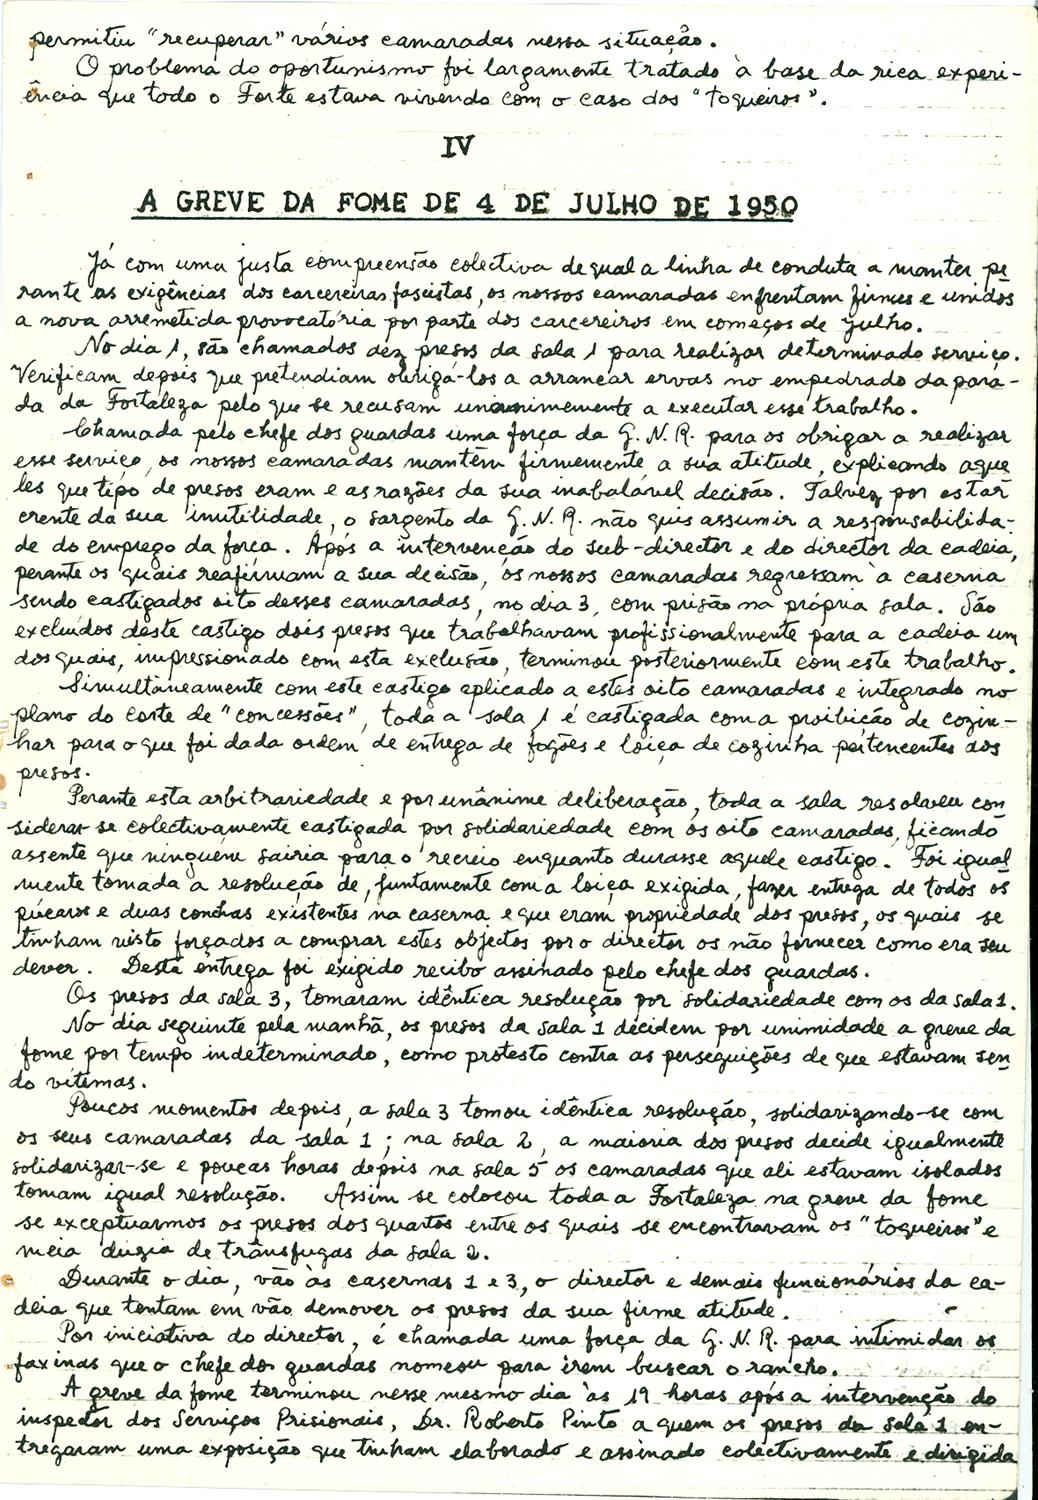 permitiu "recuperar" vários camaradas nessa situação.
O problema do oportunismo foi largamente tratado à base da rica experi-
ência que todo o Forte estava vivendo com o caso dos "toqueiros".
IV
A GREVE DA FOME DE 4 DE JULHO DE 1950
Já com uma justa compreensão colectiva de qual a linha de conduta a manter pe
rante as exigências dos carcereiros fascistas, os nossos camaradas enfrentam firmes e unidos
a nova arremetida provocatória por parte dos carcereiros em começos de Julho.
No dia 1, são chamados dez presos da sala 1 para realizar determinado serviço.
Verificam depois que pretendiam obrigá-los a arrancar ervas no empedrado da para-
da da Fortaleza pelo que se recusam unanimemente a executar esse trabalho.
Chamada pelo chefe dos guardas uma força da G.N.R. para os obrigar a realizar
esse serviço, os nossos camaradas mantêm firmemente a sua atitude, explicando aque
les que tipo de presos eram e as razões da sua inabalável decisão. Talvez por estar
crente da sua inutilidade, o sargento da G.N.R. não quis assumir a responsabilida-
de do emprego da força. Após a intervenção do sub-director e do director da cadeia,
perante os quais reafirmam a sua decisão, os nossos camaradas regressam à caserna
sendo castigados oito desses camaradas, no dia 3, com prisão na própria sala. São
excluídos deste castigo dois presos que trabalhavam profissionalmente para a cadeia um
dos quais, impressionado com esta exclusão, terminou posteriormente com este trabalho.
Simultâneamente com este castigo aplicado a estes oito camaradas e integrado no
plano do corte de "concessões", toda a sala 1 é castigada com a proibição de cozin-
har para o que foi dada ordem de entrega de fogões e loiça de cozinha pertencentes aos
presos.
Perante esta arbitrariedade e por unânime deliberação, toda a sala resolveu con
siderar-se colectivamente castigada por solidariedade com os oito camaradas, ficando
assente que ninguém sairia para o recreio enquanto durasse aquele castigo. Foi igual
mente tomada a resolução de, juntamente com a loiça exigida, fazer entrega de todos os
púcaros e duas conchas existentes na caserna e que eram propriedade dos presos, os quais se
tinham visto forçados a comprar estes objectos por o director os não fornecer como era seu
dever. Desta entrega foi exigido recibo assinado pelo chefe dos guardas.
Os presos da sala 3, tomaram idêntica resolução por solidariedade com os da sala 1.
No dia seguinte pela manhã, os presos da sala 1 decidem por unimidade a greve da
fome por tempo indeterminado, como protesto contra as perseguições de que estavam sen
do vítimas.
Poucos momentos depois, a sala 3 tomou idêntica resolução, solidarizando-se com
os seus camaradas da sala 1; na sala 2, a maioria dos presos decide igualmente
solidarizar-se e poucas horas depois na sala 5 os camaradas que ali estavam isolados
tomam igual resolução. Assim se colocou toda a Fortaleza na greve da fome
se exceptuarmos os presos dos quartos entre os quais se encontravam os "toqueiros" e
meia dúzia de trânsfugas da sala 2.
Durante o dia, vão às casernas 1 e 3, o director e demais funcionários da ca-
deia que tentam em vão demover os presos da sua firme atitude.
Por iniciativa do director, é chamada uma força da G.N.R. para intimidar os
faxinas que o chefe dos guardas nomeou para irem buscar o rancho.
A greve da fome terminou nesse mesmo dia às 19 horas após a intervenção do
inspector dos Serviços Prisionais, Dr. Roberto Pinto a quem os presos da sala 1 en-
tregaram uma exposição que tinham elaborado e assinado colectivamente e dirigida